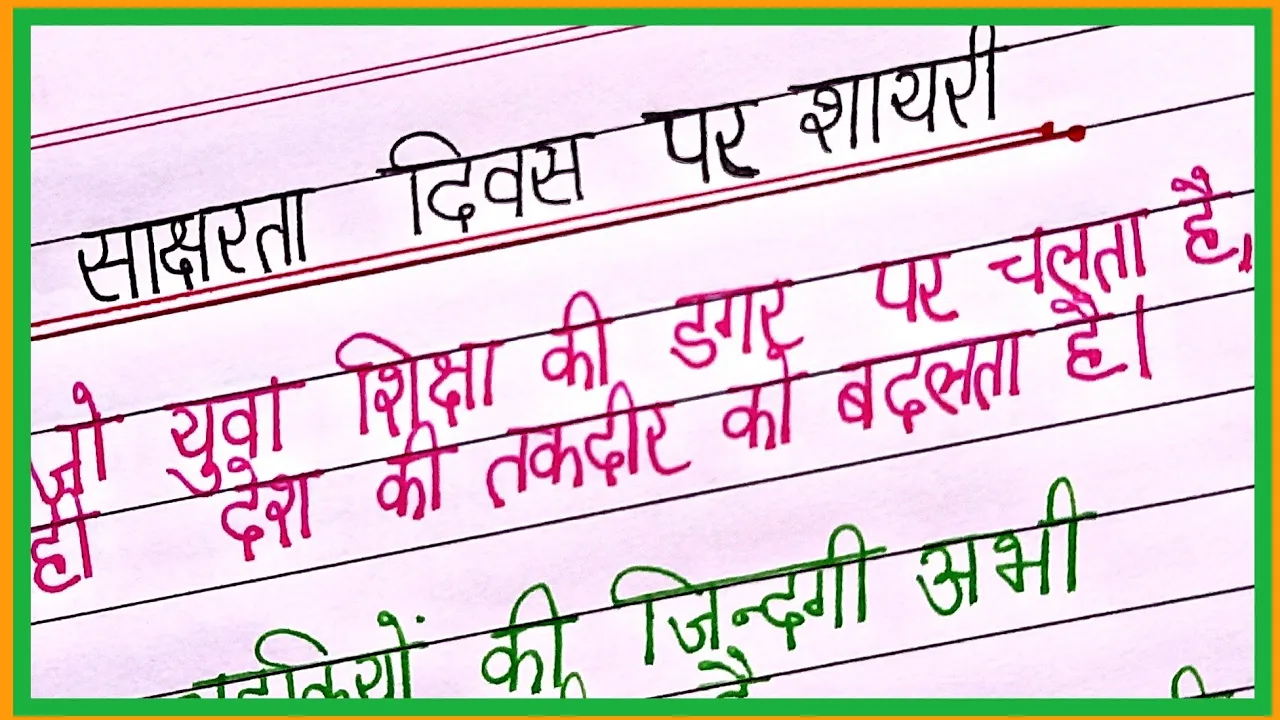 साक्षरता दिवस पर शायरी
जो युवा शिक्षा की डगर पर चलता है,
ही देश की तकदीर को बदलता है।
की जिन्दगी अभी